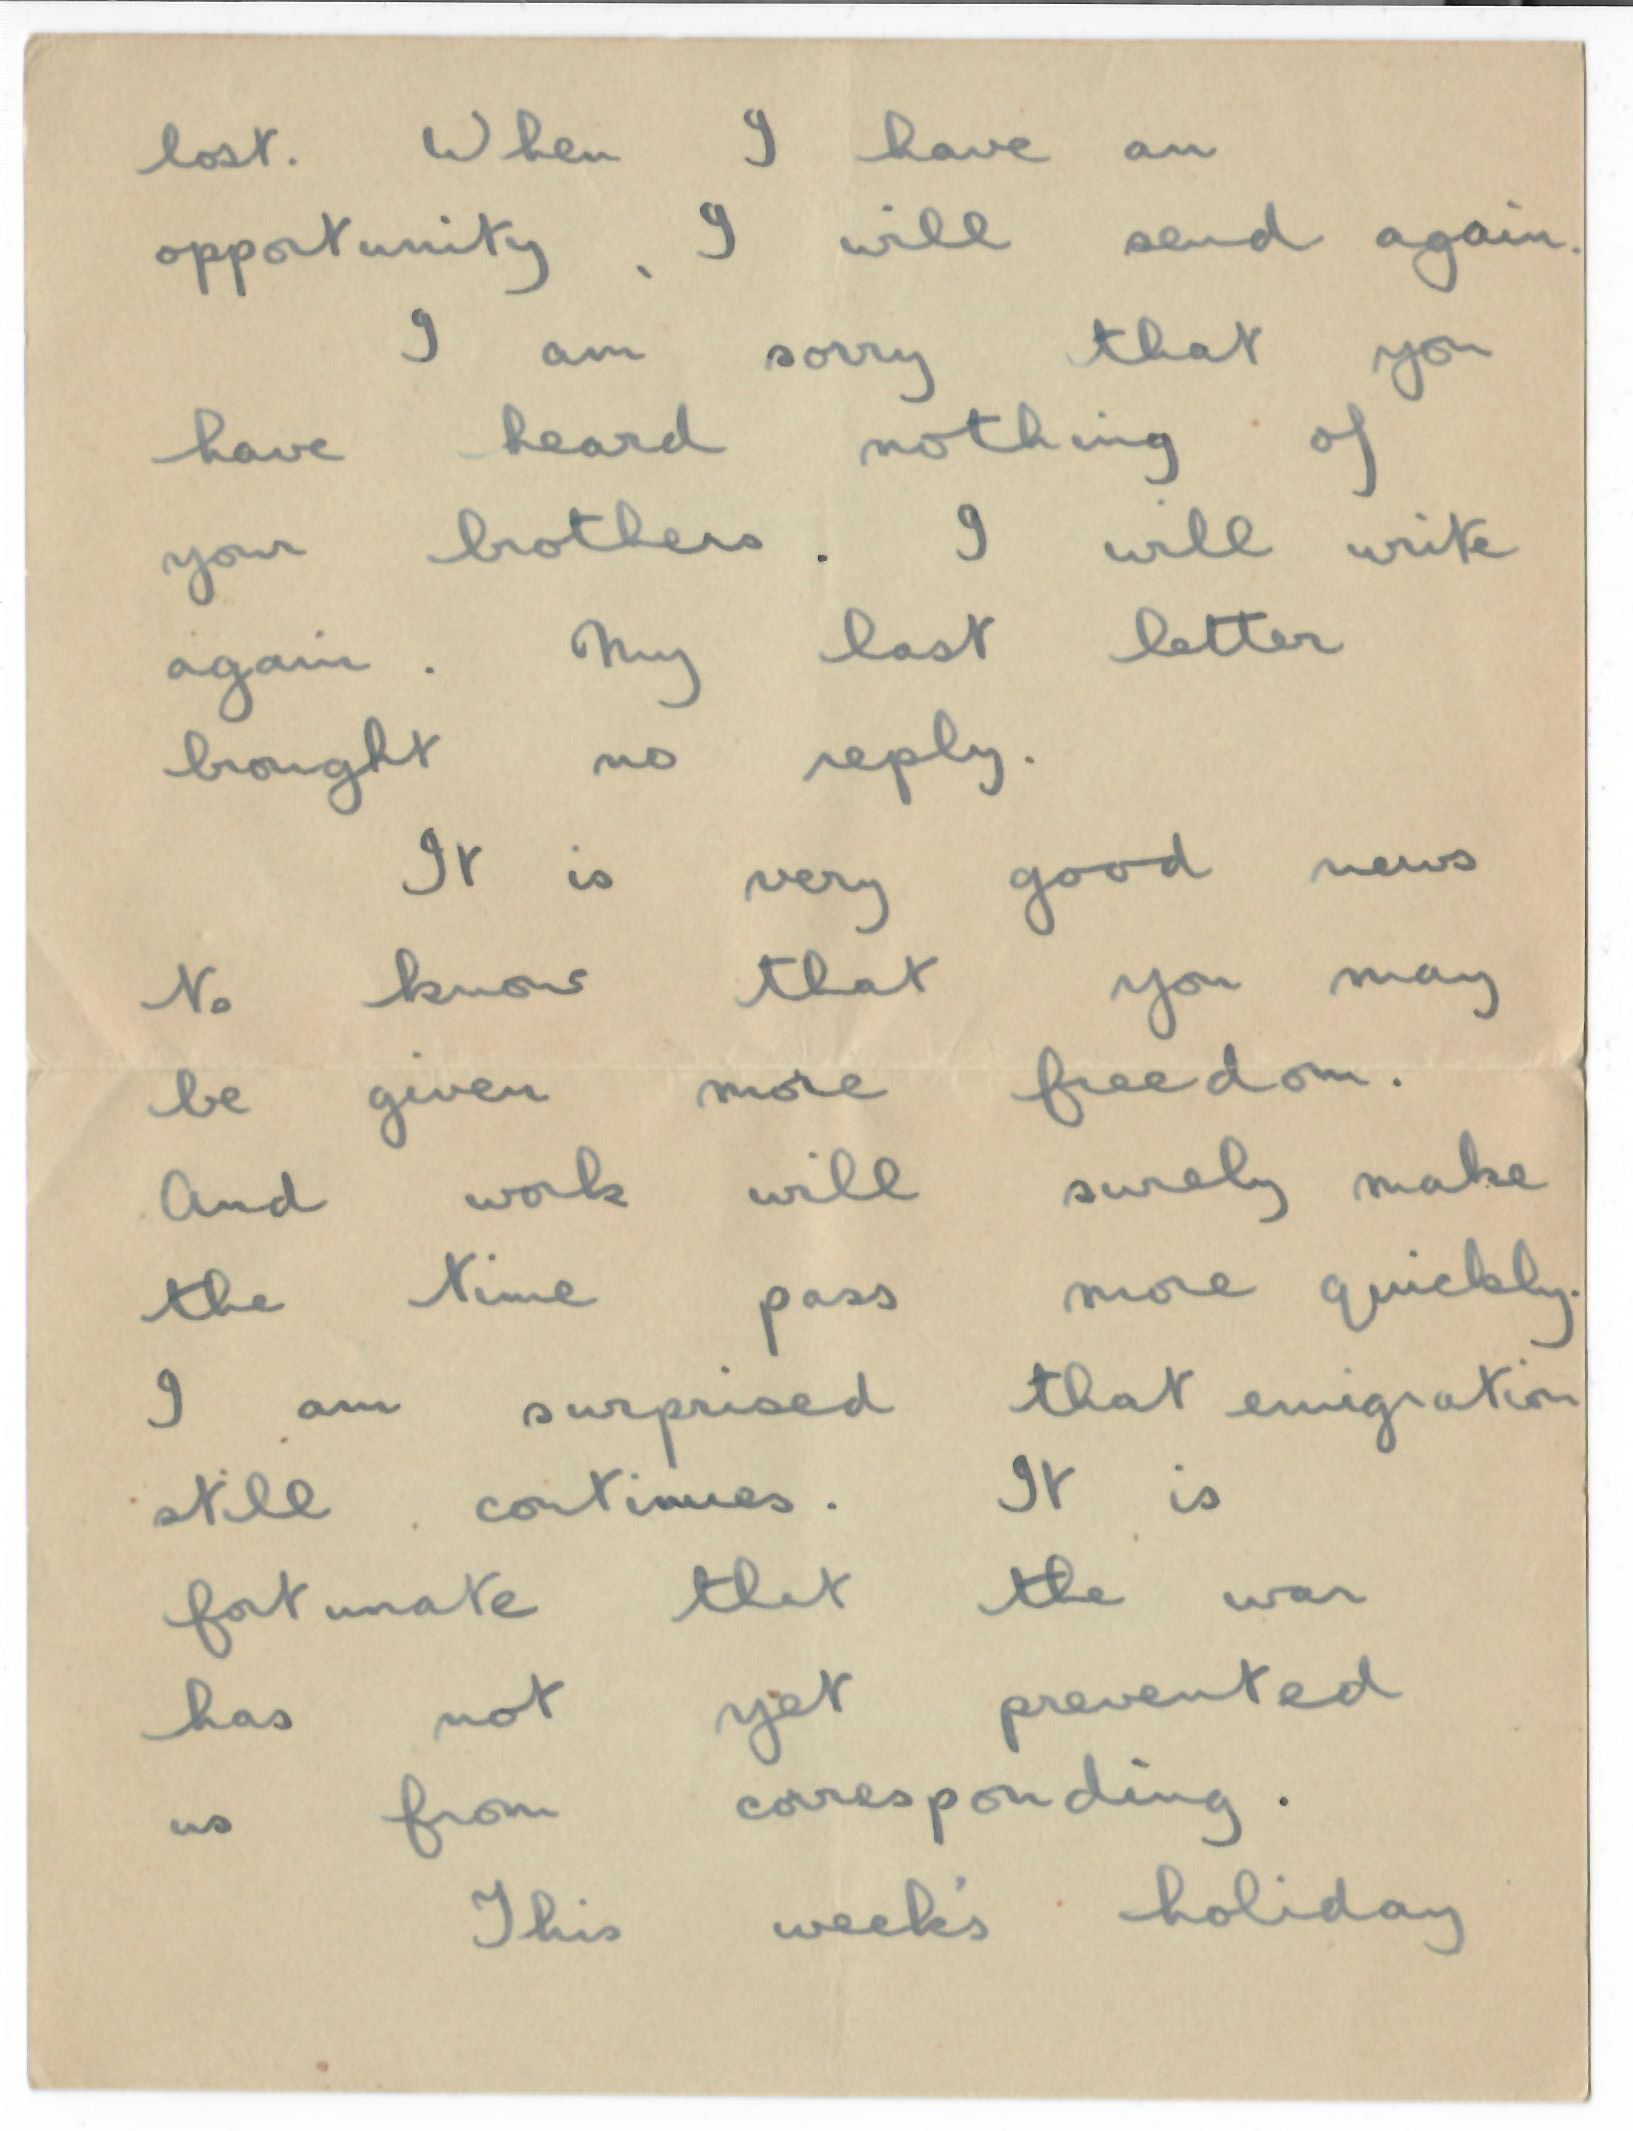 lost. When I have an
opportunity, I will send again.
I am sorry that you
have heard nothing of
your brothers. I will write
again. My last letter
brought no reply.
It is very good news
to know that you may
be given more freedom.
And work will surely make
the time pass more quickly.
I am surprised that emigration
still continues. It is
fortunate that the war
has not yet prevented
us from corresponding.
This week's holiday